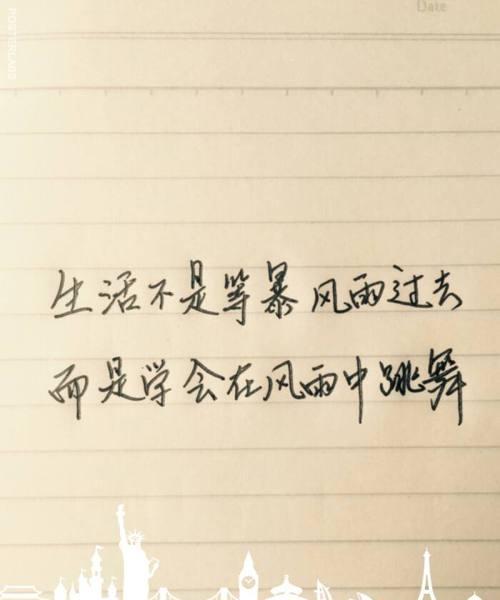 Date
POSTERLABS
生活不是等暴风雨过去
而是学会在风雨中跳舞